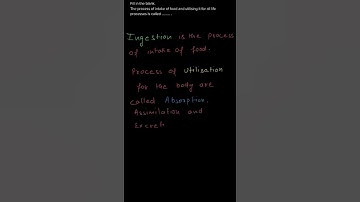 Fill in the blank.
The process of intake of food and utilising it for all life
processes is called ..........
Ingestion is the process
of intake of food.
Process of utilisation
for the body are
called Absorption,
Assimilation and
Excret